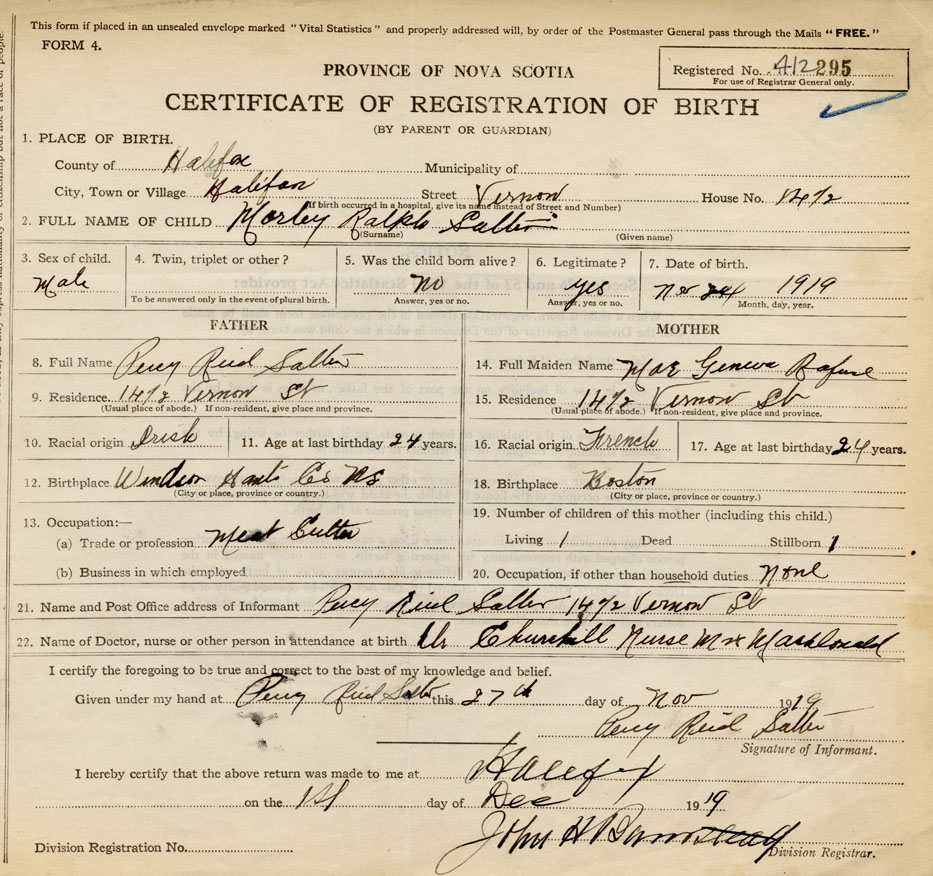 This form if placed in an unsealed envelope marked "Vital Statistics" and properly addressed will, by order of the Postmaster General pass through the Mails "FREE."
FORM 4.
PROVINCE OF NOVA SCOTIA
Registered No. 412295
For use of Registrar General only.
CERTIFICATE OF REGISTRATION OF BIRTH
(BY PARENT OR GUARDIAN)
1. PLACE OF BIRTH.
County of Halifax Municipality of
City, Town or Village Halifax Street Vernon House No. 14 1/2
(If birth occurred in a hospital, give its name instead of Street and Number)
2. FULL NAME OF CHILD Morley Ralph Salter
(Surname) (Given name)
3. Sex of child. 4. Twin, triplet or other? 5. Was the child born alive? 6. Legitimate? 7. Date of birth.
Male No yes Nov 1919
To be answered only in the event of plural birth. Answer, yes or no. Answer, yes or no. Month, day, year.
FATHER MOTHER
8. Full Name Percy Reid Salter 14. Full Maiden Name Mae Geneva Rafuse
9. Residence. 14 1/2 Vernon St 15. Residence 14 1/2 Vernon St
(Usual place of abode.) If non-resident, give place and province. (Usual place of abode.) If non-resident, give place and province.
10. Racial origin Irish 11. Age at last birthday 24 years. 16. Racial origin French 17. Age at last birthday 24 years.
12. Birthplace Windsor Hants Co NS 18. Birthplace Boston
(City or place, province or country.) (City or place, province or country.)
13. Occupation:— 19. Number of children of this mother (including this child.)
(a) Trade or profession Meat Cutter Living 1 Dead Stillborn 1
(b) Business in which employed 20. Occupation, if other than household duties None
21. Name and Post Office address of Informant Percy Reid Salter 14 1/2 Vernon St
22. Name of Doctor, nurse or other person in attendance at birth Dr Churchill Nurse Mae MacDonald
I certify the foregoing to be true and correct to the best of my knowledge and belief.
Given under my hand at Percy Reid Salter this 27th day of Nov 1919
Percy Reid Salter
Signature of Informant.
I hereby certify that the above return was made to me at Halifax
on the 1st day of Dec 1919
John H Barnstead
Division Registration No. Division Registrar.